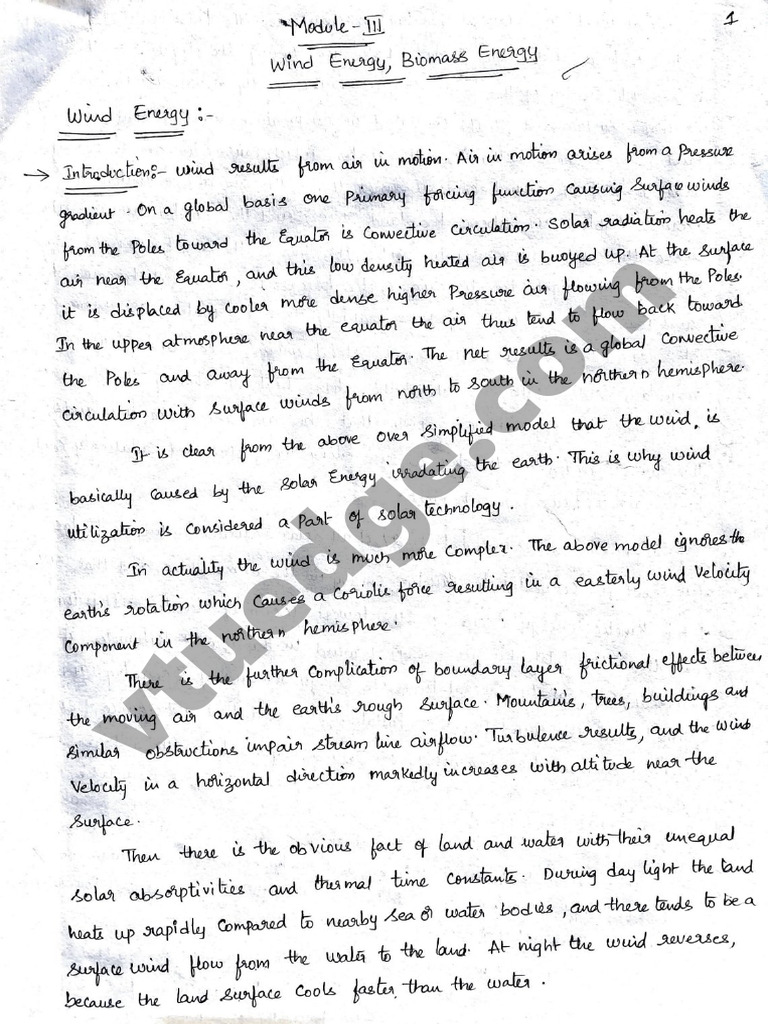 Module - III
1
Wind Energy, Biomass Energy
Wind Energy :-
→ Introduction:- wind results from air in motion. Air in motion arises from a Pressure
gradient. On a global basis one Primary forcing function causing Surface winds
from the Poles toward the Equator is Convective Circulation. Solar radiation heats the
air near the Equator, and this low density heated air is buoyed up. At the Surface
it is displaced by cooler more dense higher Pressure air flowing from the Poles.
In the upper atmosphere near the equator the air thus tend to flow back toward
the Poles and away from the Equator. The net results is a global Convective
Circulation with Surface winds from north to South in the northern hemisphere.
It is clear from the above over Simplified model that the wind, is
basically caused by the Solar Energy irradating the earth. This is why wind
utilization is considered a Part of solar technology.
In actuality the wind is much more Complex. The above model ignores the
earth's rotation which causes a Coriolis force resulting in a easterly wind Velocity
Component in the northern hemisphere.
There is the further Complication of boundary layer frictional effects between
the moving air and the earth's rough Surface. Mountains, trees, buildings and
Similar obstructions impair stream line airflow. Turbulense results, and the wind
Velocity in a horizontal direction markedly increases with altitude near the
Surface.
Then there is the obvious fact of land and water with their unequal
Solar absorptivities and thermal time constants. During day light the land
heats up rapidly Compared to nearby sea or water bodies, and there tends to be a
Surface wind flow from the water to the land. At night the wind reverses,
because the land Surface Cools faster than the water.
vtuedge.com